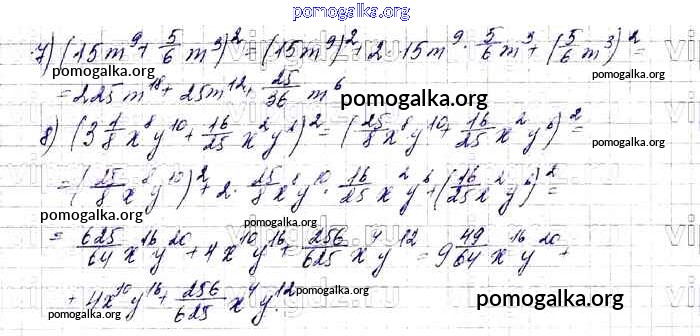 pomogalka.org
7) (15m⁹ + 5/6 m³)² = (15m⁹)² + 2 · 15m⁹ · 5/6 m³ + (5/6 m³)² =
pomogalka.org pomogalka.org
= 225m¹⁸ + 25m¹² + 25/36 m⁶
pomogalka.org
8) (3 1/8 x⁸y¹⁰ + 16/25 x²y⁶)² = (25/8 x⁸y¹⁰ + 16/25 x²y⁶)² =
pomogalka.org
= (25/8 x⁸y¹⁰)² + 2 · 25/8 x⁸y¹⁰ · 16/25 x²y⁶ + (16/25 x²y⁶)² =
pomogalka.org pomogalka.org
= 625/64 x¹⁶y²⁰ + 4x¹⁰y¹⁶ + 256/625 x⁴y¹² = 9 49/64 x¹⁶y²⁰ +
+ 4x¹⁰y¹⁶ + 256/625 x⁴y¹².
pomogalka.org
pomogalka.org